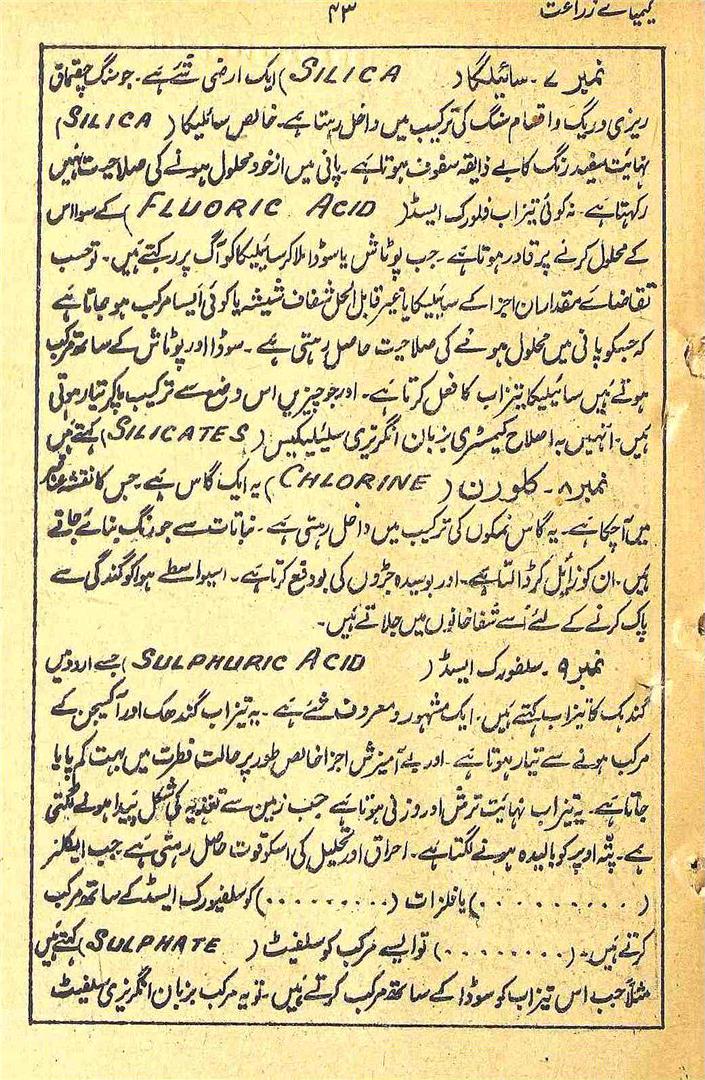 کیمیائے زراعت
۴۳
نمبر ۷ ۔ سائیلیکا (SILICA) ایک ارضی شئے ہے۔ جو سنگ چقماق
ریزی و ریگ و اقسام سنگ کی ترکیب میں داخل رہتا ہے۔ خالص سائلیکا (SILICA)
نہائت سفید رنگ کا بے ذایقہ سفوف ہوتا ہے۔ پانی میں از خود محلول ہونے کی صلاحیت نہیں
رکھتا ہے۔ نہ کوئی تیزاب فلورک ایسڈ (FLUORIC ACID) کے سوا اس
کے محلول کرنے پر قادر ہوتا ہے۔ جب پوٹاش یا سوڈا ملا کر سائیلیکا کو آگ پر رکہتے ہیں۔ تو حسب
تقاضائے مقدار ان اجزا کے سائیلیکا یا غیر قابل الحل شفاف شیشہ یا کوئی ایسا مرکب ہو جاتا ہے
کہ جسکو پانی میں محلول ہونے کی صلاحیت حاصل رہتی ہے۔ سوڈا اور پوٹاش کے ساتھ مرکب
ہونے میں سائیلیکا تیزاب کا فعل کرتا ہے۔ اور جو چیزیں اس وضع سے ترکیب پاکر تیار ہوتی
ہیں۔ انہیں بہ اصلاح کیمسٹری بزبان انگریزی سیلیکیٹس (SILICATES) کہتے ہیں
نمبر ۸ ۔ کلورن (CHLORINE) یہ ایک گاس ہے۔ جس کا نقشہ
میں آچکا ہے۔ یہ گاس نمکوں کی ترکیب میں داخل رہتی ہے۔ نباتات سے جو رنگ بنائے جاتے
ہیں۔ ان کو زائل کر ڈالتا ہے۔ اور بوسیدہ جڑوں کی بو دفع کرتا ہے۔ اسیواسطے ہوا کو گندگی سے
پاک کرنے کے لئے اُسے شفاخانوں میں جلاتے ہیں۔
نمبر ۹ ۔ سلفورک ایسڈ (SULPHURIC ACID) جسے اردو میں
گندہک کا تیزاب کہتے ہیں۔ ایک مشہور و معروف شئے ہے۔ یہ تیزاب گندھک اور آکسیجن کے
مرکب ہونے سے تیار ہوتا ہے۔ اور بے آمیزش اجزا خالص طور پر حالت فطرت میں بہت کم پایا
جاتا ہے۔ یہ تیزاب نہایت ترش اور وزنی ہوتا ہے جب زمین سے تغذیہ کی شکل پیدا ہونے لگتی
ہے۔ پتّہ اوپر کو بالیدہ ہونے لگتا ہے۔ احراق اور تحلیل کی اسکو قوت حاصل رہتی ہے۔ جب ایکلنر
(..........) یا فلزات (.........) کو سلفیورک ایسڈ کے ساتھ مرکب
کرتے ہیں۔ (........) تو ایسے مرکب کو سلفیٹ (SULPHATE) کہتے ہیں
مثلاً جب اس تیزاب کو سوڈا کے ساتھ مرکب کرتے ہیں۔ تو یہ مرکب بزبان انگریزی سلفیٹ